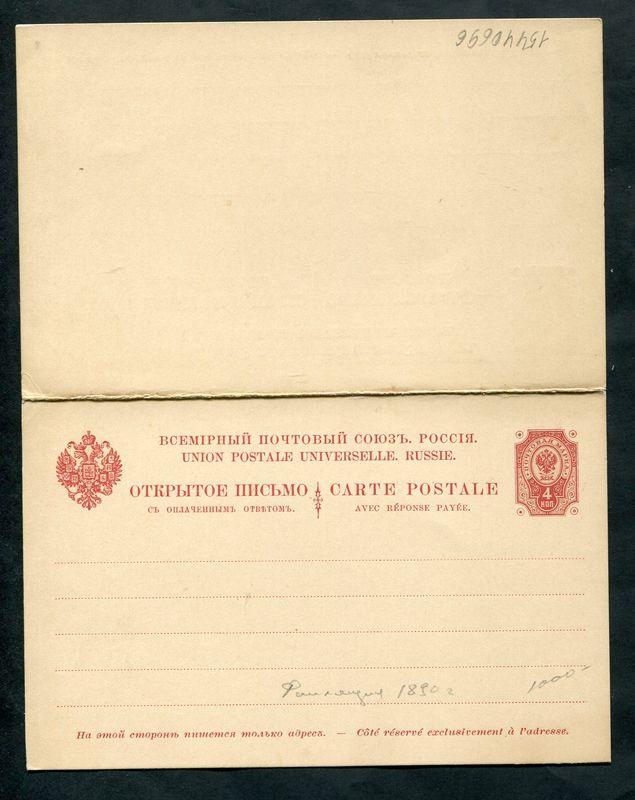 15440696
ВСЕМІРНЫЙ ПОЧТОВЫЙ СОЮЗЪ. РОССІЯ.
UNION POSTALE UNIVERSELLE. RUSSIE.
ОТКРЫТОЕ ПИСЬМО CARTE POSTALE
СЪ ОПЛАЧЕННЫМЪ ОТВѢТОМЪ. AVEC RÉPONSE PAYÉE.
ПОЧТОВАЯ МАРКА
4
КОП
Финляндия 1890 г
1000-
На этой сторонѣ пишется только адресъ. — Côté réservé exclusivement à l'adresse.